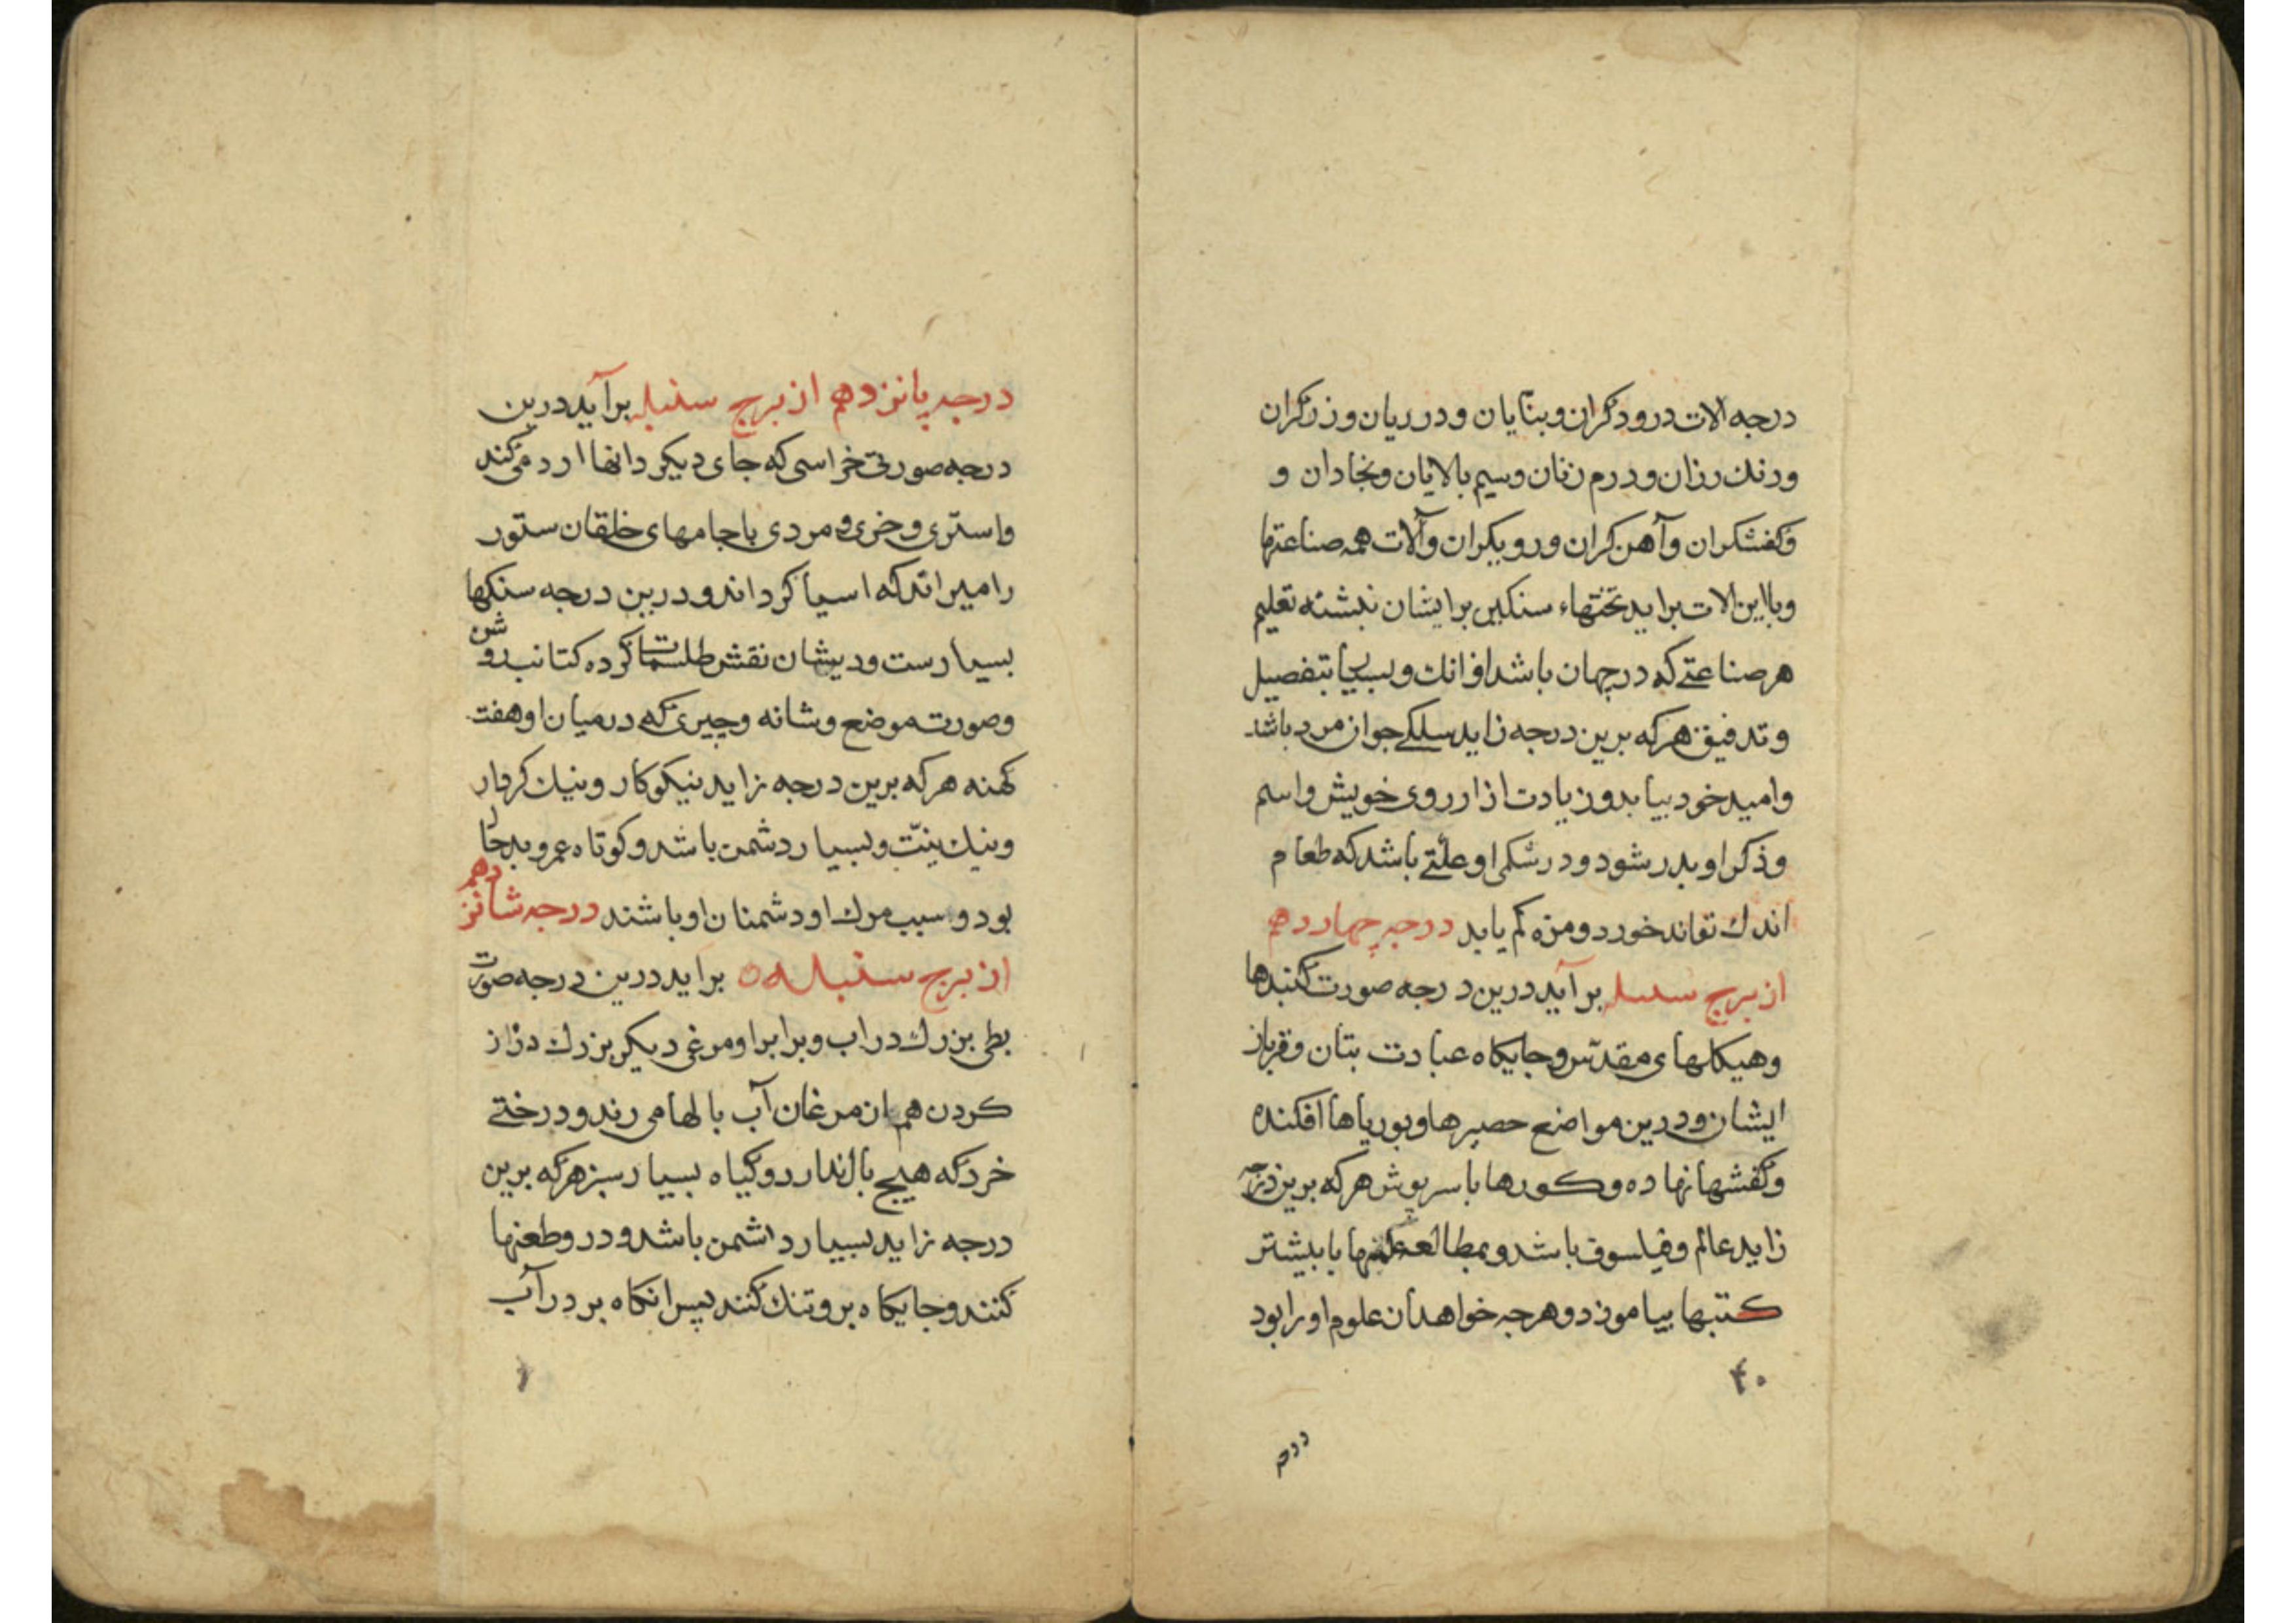 درجه الات درودکران وبنایان ودرریان وزرکران
ورنك رزان ودرم زنان وسیم بالایان ونجادان و
وکفشکران وآهن کران ورویکران وآلات همه صناعتها
وبااین الات براید تختهاء سنکین برایشان نبشته تعلیم
هر صناعتے که در جهان باشد از انك وبسیا بتفصیل
وتدقیق هرکه برین درجه زاید سلکے جوان مرد باشد
وامید خود بیابد وزیادت از ارزوی خویش واسم
وذکر او بدر شود ودر شکم او علّتے باشد که طعام
اندك تواند خورد ومزه کم یابد درجه چهاردهم
از برج سنبله برآید درین درجه صورت کنبدها
وهیکلهای مقدّس وجایکاه عبادت بتان وقربان
ایشان ودرین مواضع حصیرها وبوریاها افکنده
وکفشها نهاده وکورها با سرپوش هرکه برین درجه
زاید عالم وفیلسوف باشد وبمطالعه علمها یا بیشتر
کتبها بیاموزد وهرچه خواهد ان علوم اورا بود
۴۰
درجه پانزدهم از برج سنبله برآید درین
درجه صورتی خراسی که جای دیکر دانها ارد می کند
واستری وخری ومردی باجامهای خلقان ستور
رامیراند که اسیا کرداند ودرین درجه سنکها
بسیارست وریشان نقش طلسمات کرده کتانب روشن
وصورت موضع وشانه وچیزی که درمیان او هفت
کهنه هرکه برین درجه زاید نیکوکار ونیك کردار
ونیك نیّت وبسیار دشمن باشد وکوتاه عمر وبدحال
بود وسبب مرك او دشمنان او باشند درجه شانزدهم
از برج سنبله براید درین درجه صورت
بطی بزرك در اب وبرابر او مرغی دیکر بزرك دراز
کردن هم ازمرغان آب بالها می زند ودرختے
خرد که هیچ بال ندارد وکیاه بسیار سبز هرکه برین
درجه زاید بسیار دشمن باشد ودرو طعنها
کنند وجایکاه برو تنك کنند پس انکاه بر در آب